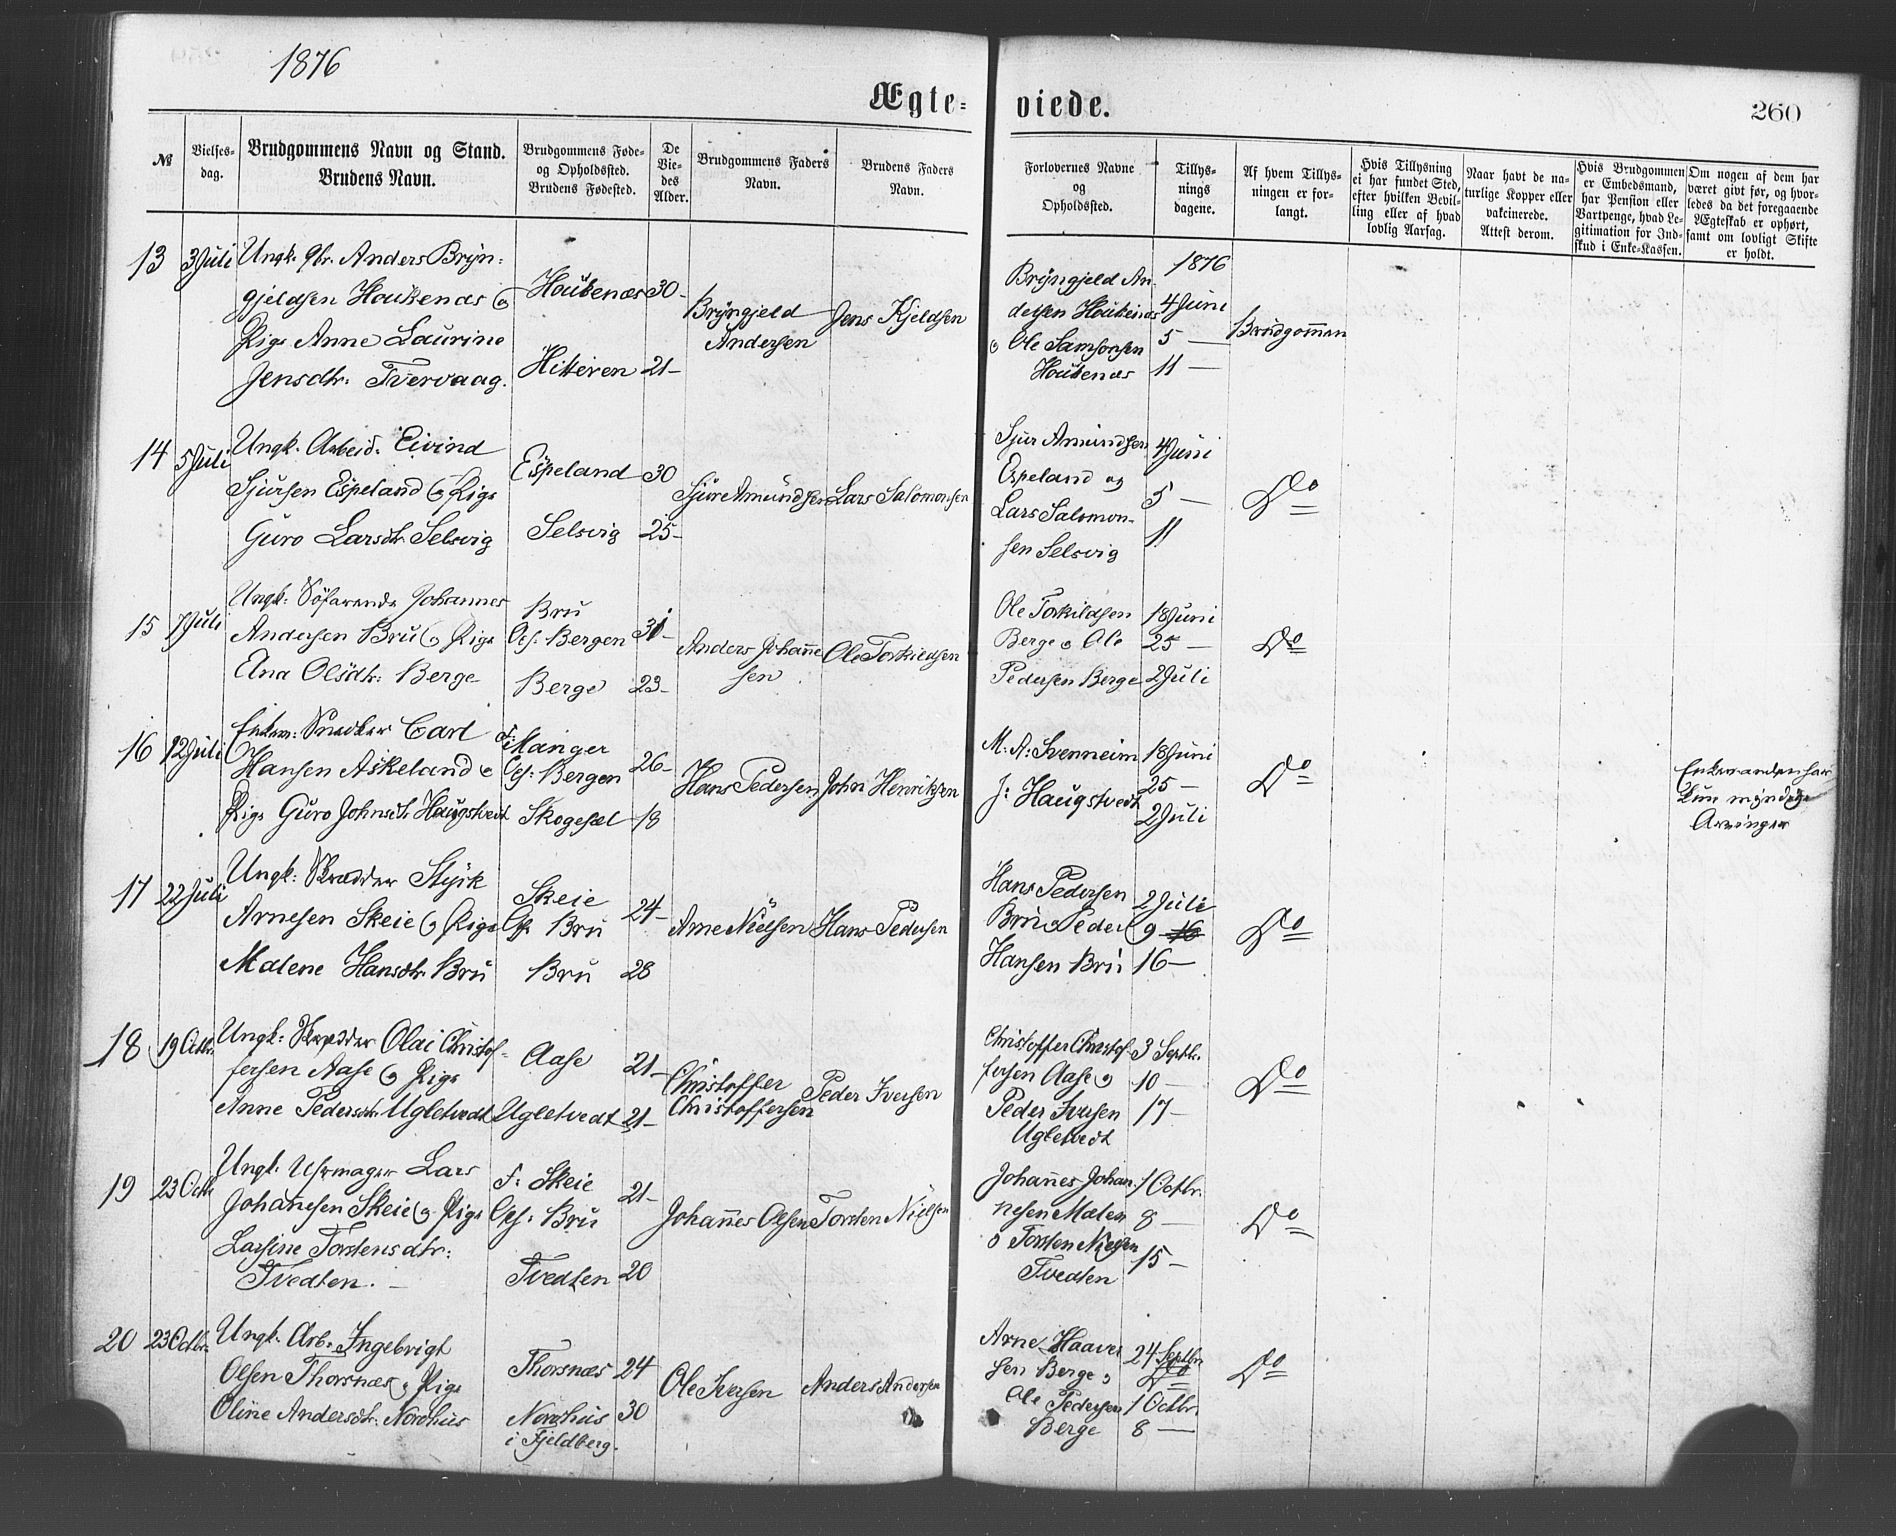 1876
Ægte-
viede.
260
№
Vielses-
dag.
Brudgommens Navn og Stand.
Brudens Navn.
Brudgommens Føde-
og Opholdssted.
Brudens Fødested.
De
Vie-
des
Alder.
Brudgommens Faders
Navn.
Brudens Faders
Navn.
Forlovernes Navne
og
Opholdssted.
Tillys-
nings
dagene.
Af hvem Tillys-
ningen er for-
langt.
Hvis Tillysning
ei har fundet Sted,
efter hvilken Bevil-
ling eller af hvad
lovlig Aarsag.
Naar havt de na-
turlige Kopper eller
vakcinerede.
Attest derom.
Hvis Brudgommen
er Embedsmand,
har Pension eller
Vartpenge, hvad Le-
gitimation for Ind-
skud i Enke-Kassen.
Om nogen af dem har
været givt før, og hvor-
ledes da det foregaaende
Ægteskab er ophørt,
samt om lovligt Skifte
er holdt.
13
3 Juli
Ungk. Gbr. Anders Bryn-
gjeldsen Houkenæs og
Pige Anne Laurine
Jensdtr: Tvervaag.
Houkenæs
Hitteren
30-
21-
Bryngjeld
Andersen
Jens Kjeldsen
Bryngjeld An-
dersen Houkenæs
o Ole Samsonsen
Houkenæs
1876
4 Juni
5 —
11 —
Brudgommen
14
5 Juli
Ungk. Arbeid. Eivind
Sjursen Espeland og Pige
Guro Larsdtr. Selsvig
Espeland
Selsvig
30
25-
Sjur Amundsen
Lars Salomonsen
Sjur Amundsen
Espeland og
Lars Salomon-
sen Selsvig
4 Juni
5 —
11
Do
15
7 Juli
Ungk: Söfarende Johannes
Andersen Bru og Pige
Ana Olsdtr: Berge
Bru
Opf: Bergen
Berge
31-
23-
Anders Johanne
sen
Ole Torkildsen
Ole Torkildsen
Berge o Ole
Pedersen Berge
18 Juni
25 —
2 Juli
Do
16
12 Juli
Enkem: Snedker Carl
Hansen Askeland o
Pige Guro Johnsdtr Haugstvedt
f: Manger
Opf: Bergen
Skogesæl
26-
18
Hans Pedersen
John Henriksen
M. A: Svenheim
J: Haugstvedt
18 Juni
25 —
2 Juli
Do
Enkemanden har
kun myndige
Arvinger
17
22 Juli
Ungk: Skrædder Styrk
Arnesen Skeie og Pige
Malene Hansdtr. Bru
Skeie
Opf. Bru
Bru
24-
28
Arne Nielsen
Hans Pedersen
Hans Pedersen
Bru o Peder
Hansen Bru
2 Juli
9 16
16 —
Do
18
19 Octbr.
Ungk: Skrædder Olai Christof-
fersen Aase og Pige
Anne Pedersdtr. Ugletvedt
Aase
Ugletvedt
21-
21-
Christoffer
Christoffersen
Peder Iversen
Christoffer Christof-
fersen Aase og
Peder Iversen
Ugletvedt
3 Septbr.
10 —
17 —
Do
19
23 Octbr
Ungk. Uhrmager Lars
Johanesen Skeie og Pige
Larsine Torstensdtr:
Tvedten. —
f. Skeie
Opf: Bru
Tvedten
21-
20
Johannes Olsen
Torsten Nielsen
Johannes Johan-
nesen Mæten
o Torsten Nielsen
Tvedten
1 Octbr.
8 —
15 —
Do
20
23 Octbr.
Ungk. Arb. Ingebrigt
Olsen Thorsnæs og Pige
Oline Andersdtr. Nordhus
Thorsnæs
Nordhus
i Fjeldberg.
24
30
Ole Iversen
Anders Andersen
Arne Haaver
sen Berge og
Ole Pedersen
Berge
24 Septbr
1 Octbr.
8 —
Do